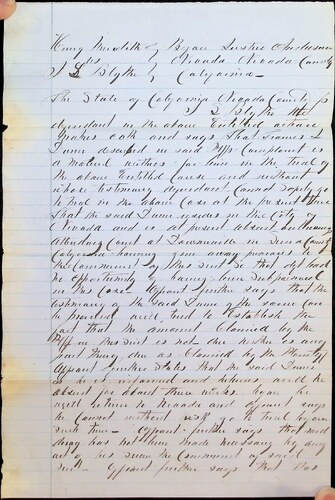 Henry Meredith } Before Justice Anderson
vs } Nevada Nevada County
L Blythe } California
The State of California Nevada County ss
L Blythe the
defendant in the above Entitled action
makes oath and says that James L
Dunn described in said Plffs Complaint is
a material witness for him in the trial of
the above Entitled Cause and without
whose testimony defendant cannot safely go
to trial in the above Case at the present time
That the said Dunn resides in the City of
Nevada and is at present absent
Attending Court at Downieville in Sierra County
California having gone away previous to
the Commencement of this Suit So that deft had
no opportunity of having him Subpoenaed
in this Case Affiant further says that the
testimony of the said Dunn if the same can
be procured will tend to Establish the
fact that the amount Claimed by the
Plff in this suit is not due neither is any
part thereof due as Claimed by the Plaintiff
Affiant further States that the said Dunn
as he is informed and believes will be
absent for about three weeks when he
will return to Nevada and affiant says
he Cannot without risk go to trial before
such time Affiant further says that said
delay has not been made necessary by any
act of his since the Commencement of said
suit Affiant further says that has